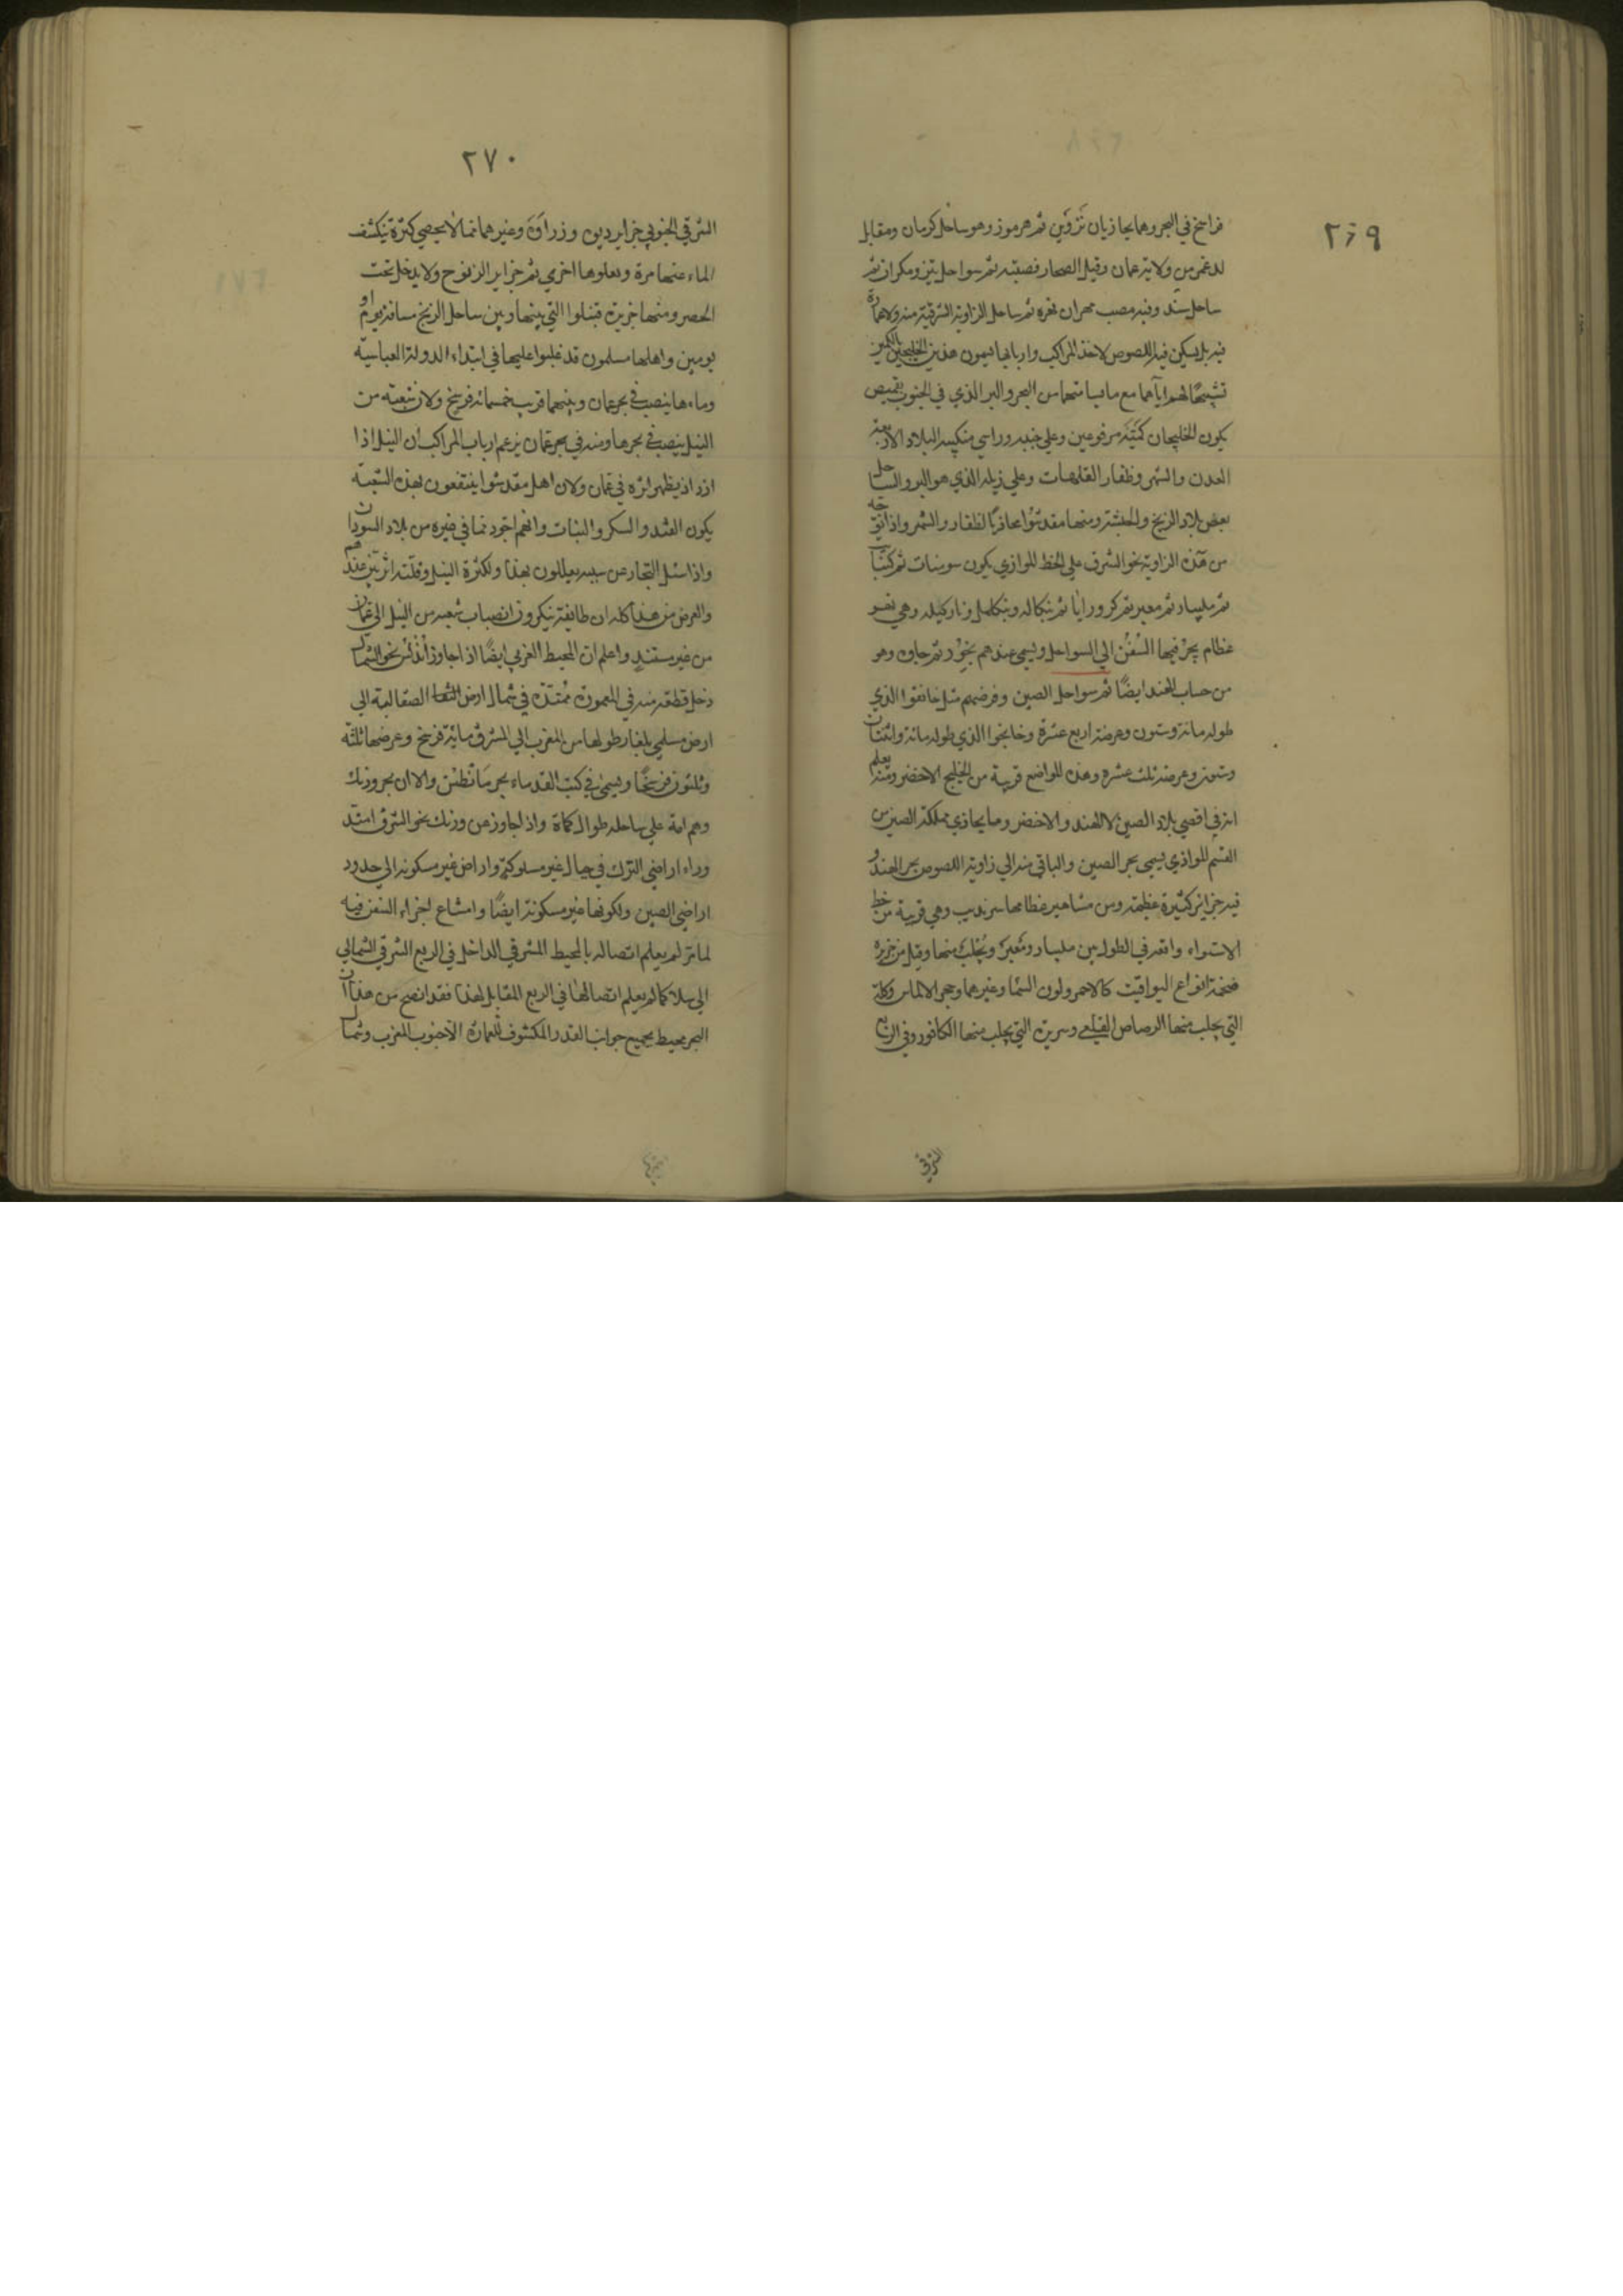 ٢٦٩
فراسخ في البحر وهما يحاذيان تزوين ثم هرموز وهو ساحل كرمان ومقابل
من ولاية عمان وقيل الصحار قصبته ثم سواحل تيز ومكران ثم
ساحل سند وفيه مصب مهران نهره ثم ساحل الزاوية الشرقية منه ولا عمارة
فيه بل يسكن فيه اللصوص لاخذ المراكب واربابها يسمون هذين الخليجين بالكمين
تشبيها لهم اياهما مع ما يماسهما من البحر والبر الذي في الجنوب بقميص
يكون الخليجان كميه مرفوعين وعلى جنبه وراسي منكبيه البلاد الاربعة
العدن والشحر وظفار القلهات وعلى ذيله الذي هو البر والساحل
بعض بلاد الزنج والحبشة ومنها مقدشوا محاذيا لظفار والشحر واذا توجه
من هذه الزاوية نحو الشرق على الخط الموازي يكون سومنات ثم كنبايت
ثم مليبار ثم معبر ثم كرورايا ثم بنكاله وبنكاهل وناركيله وهي نهر
عظام يجر فيها السفن الى السواحل ويسمى عندهم بخور ثم جاوه وهو
من حساب الهند ايضا ثم سواحل الصين وفرضهم مثل خانقوا الذي
طوله مائة وستون وعرضه اربع عشرة وخانجوا الذي طوله مائة واثنتان
وستون وعرضه ثلث عشرة وهذه المواضع قريبة من الخليج الاخضر ومنه يعلم
انه في اقصى بلاد الصين لا الهند والاخضر وما يحاذي مملكة الصين من
القسم الموازي يسمى بحر الصين والباقي منه الى زاوية اللصوص بحر الهند و
فيه جزائر كثيرة عظيمة ومن مشاهير عظامها سرنديب وهي قريبة من خط
الاستواء واقعة في الطول بين مليبار ومعبر ويجلب منها وقيل من جزيرة
ضخمة انواع اليواقيت كالاحمر ولون السما وغيرهما وحجر الالماس وكله
التي يجلب منها الرصاص القلعي وسريره التي يجلب منها الكافور وفي الربع
الشرقي
٢٧٠
الشرقي الجنوبي جزاير ديب وزراق وغيرهما مما لا يحصى كثرة ينكشف
الماء عنها مرة ويعلوها اخرى ثم جزاير الزنوج ولا يدخل تحت
الحصر ومنها جزيرة قنبلوا التي بينها وبين ساحل الزنج مسافة يوم او
يومين واهلها مسلمون قد غلبوا عليها في ابتداء الدولة العباسية
وماءها ينصب في بحر عمان وبينهما قريب خمسمائة فرسخ ولان شعبة من
النيل ينصب في بحرها ومنه في بحر عمان يزعم ارباب المراكب ان النيل اذا
ازداد يظهر اثره في عمان ولان اهل مقدشوا ينتفعون بهذه الشعبة
يكون القند والسكر والنبات وانعم اجود مما في غيره من بلاد السودان
واذا سئل التجار عن سببه يعللون بهذا ولكثرة النيل وقلته اثر بين عندهم
والغرض من هذا كله ان طائفة ينكرون انصباب شعبه من النيل الى عمان
من غير مستند واعلم ان المحيط الغربي ايضا اذا جاوز اندلس نحو الشمال
دخل قطعة منه في المعمورة ممتدة في شمال ارض الصقالبة الى
ارض مسلمي بلغار طولها من المغرب الى المشرق مائة فرسخ وعرضها ثلثة
وثلثون فرسخا ويسمى في كتب القدماء بحر مانطس والان بحر ورنك
وهم امة على ساحله طوال كماة واذا جاوز عن ورنك نحو الشرق امتد
وراء اراضي الترك في جبال غير مسلوكة واراض غير مسكونة الى حدود
اراضي الصين ولكونها غير مسكونة ايضا وامتناع اجراء السفن فيه
لما مر لم يعلم اتصاله بالمحيط المشرقي الداخل في الربع الشرقي الشمالي
الى سلا كما لم يعلم اتصالها في الربع المقابل لهذا فقد اتضح من هذا ان
البحر محيط بجميع جوانب القدر المكشوف للعمارة الا جنوب المغرب وشمال